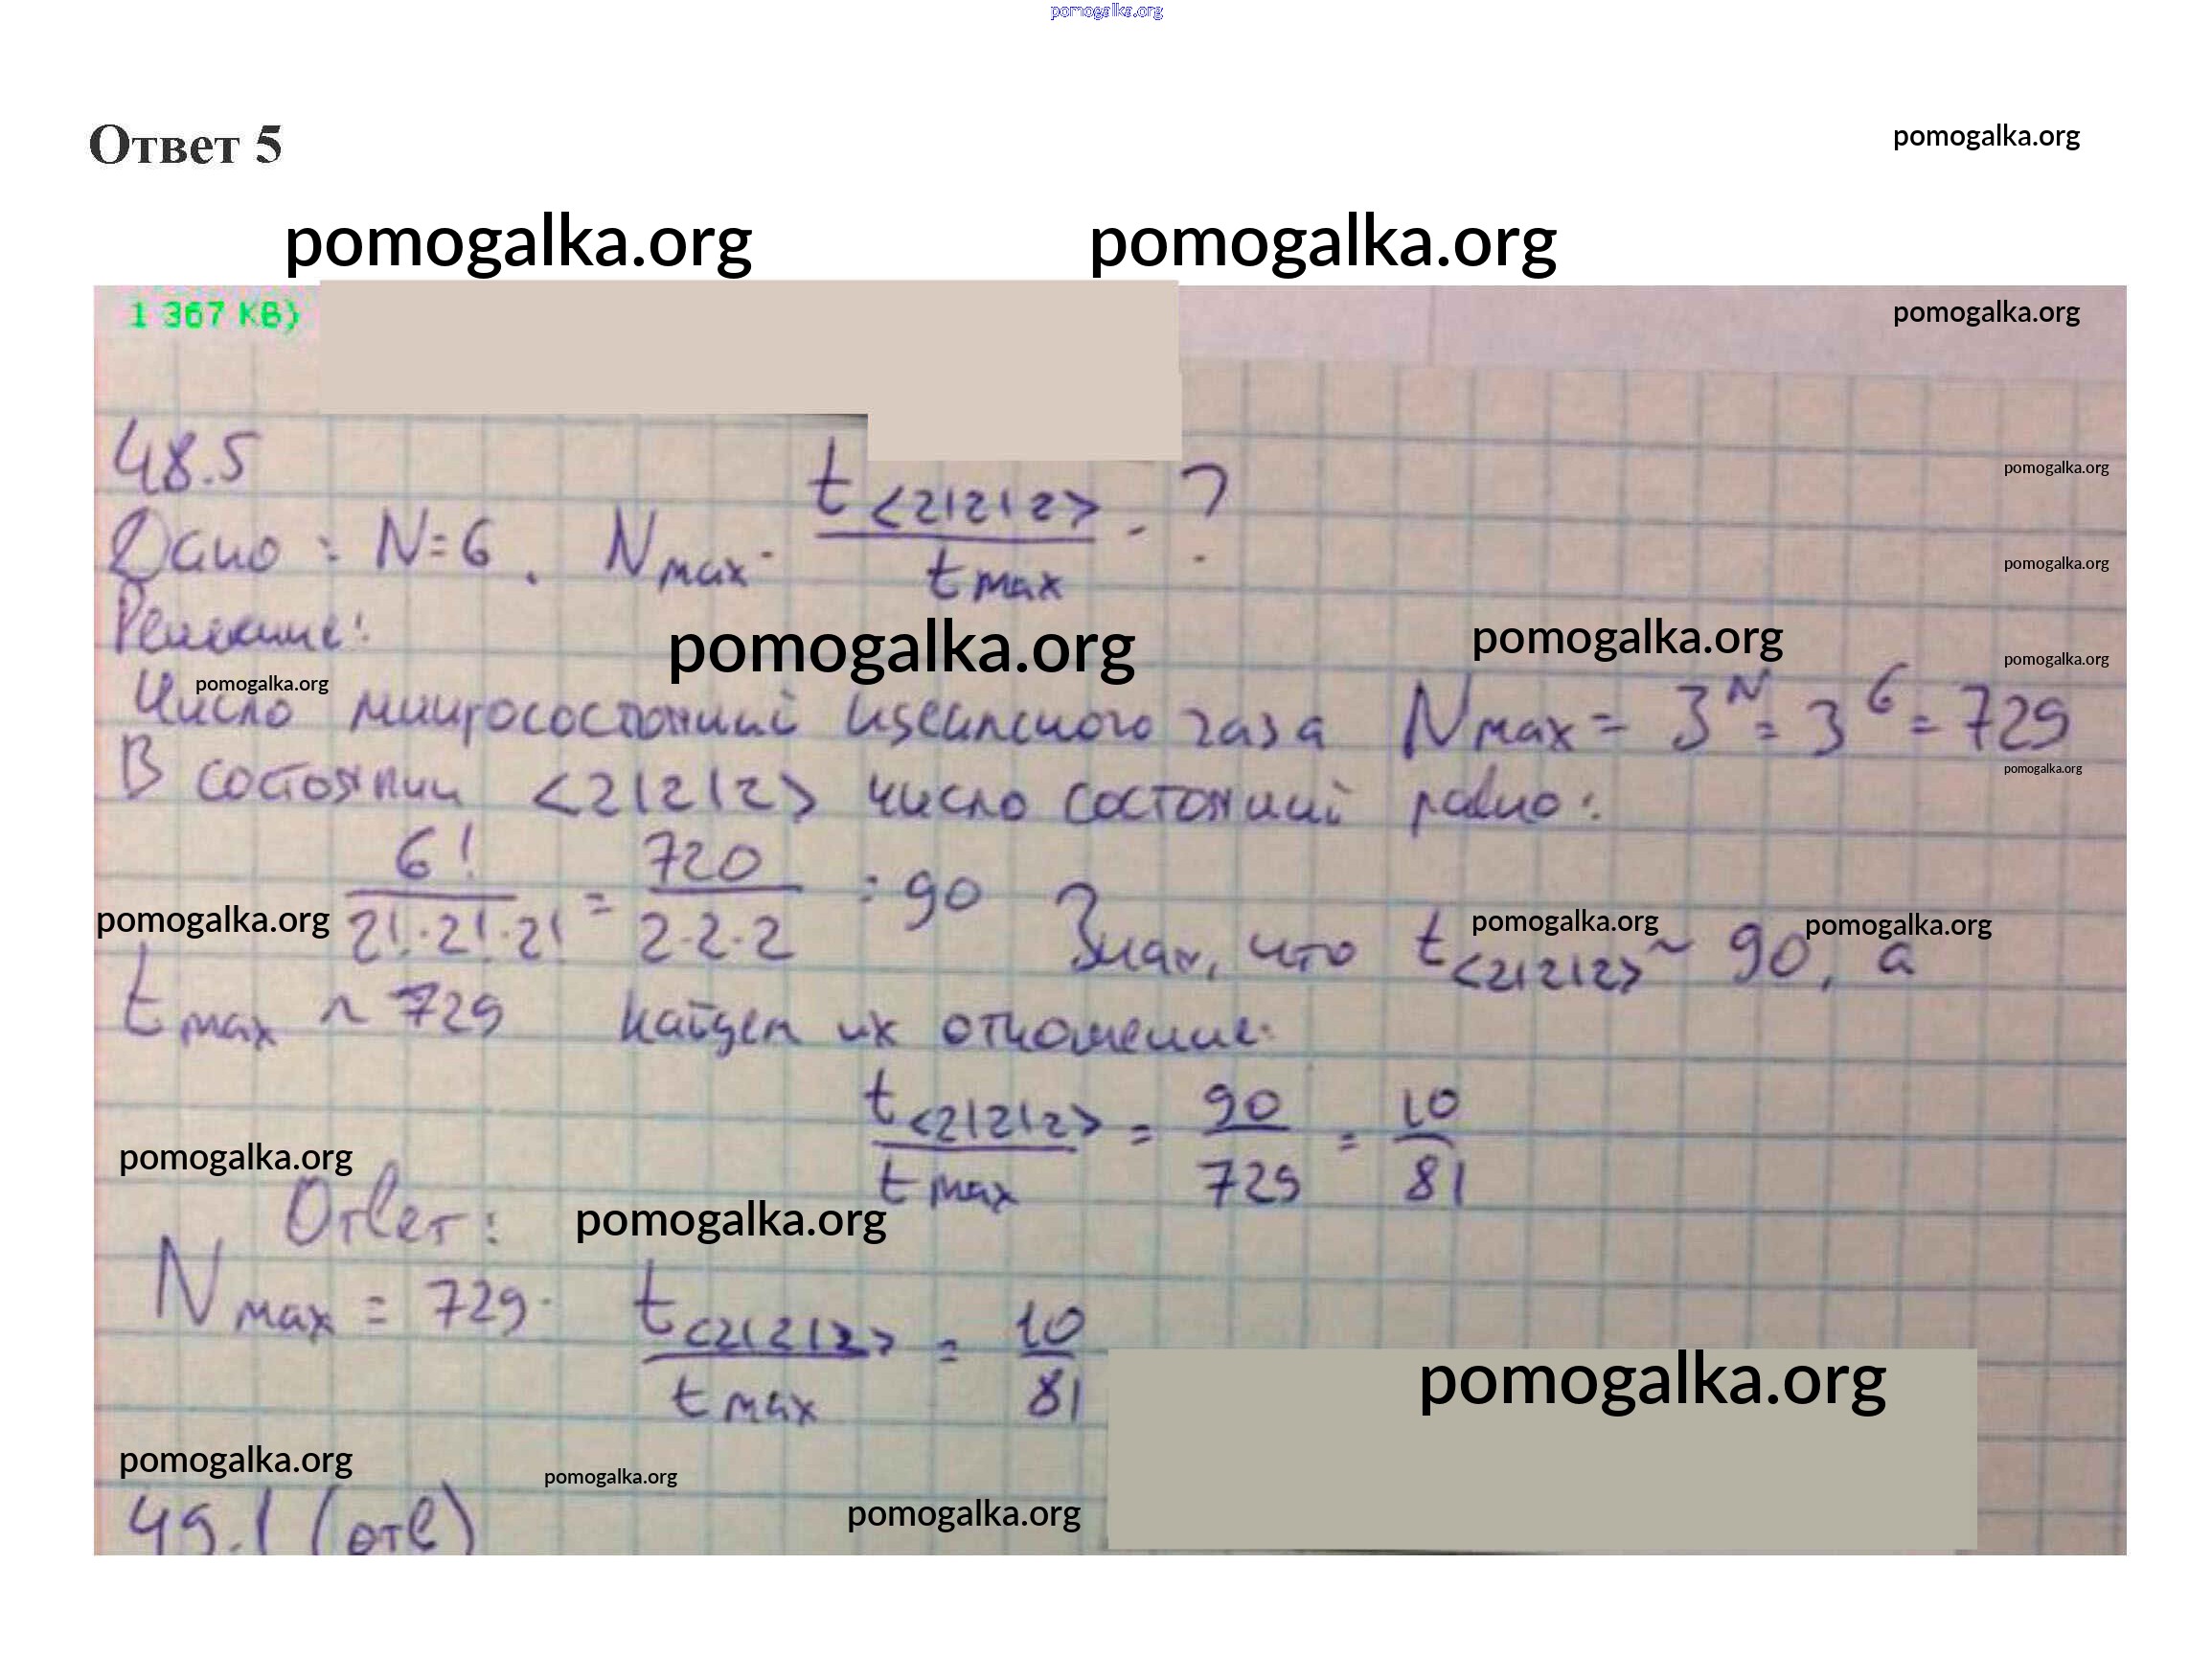 pomogalka.org
Ответ 5
pomogalka.org
pomogalka.org pomogalka.org
1 367 KB)
pomogalka.org
48.5
pomogalka.org
Дано: N=6. Nmax. t<2|2|2> / tmax - ?
pomogalka.org
Решение:
pomogalka.org pomogalka.org pomogalka.org
pomogalka.org
Число микросостояний идеального газа Nmax = 3^N = 3^6 = 729
pomogalka.org
В состоянии <2|2|2> число состояний равно:
6! / 2!·2!·2! = 720 / 2·2·2 = 90 Зная, что t<2|2|2> ~ 90, а
pomogalka.org pomogalka.org pomogalka.org
tmax ~ 729 найдем их отношение:
t<2|2|2> / tmax = 90 / 729 = 10 / 81
pomogalka.org
Ответ:
pomogalka.org
Nmax = 729. t<2|2|2> / tmax = 10 / 81
pomogalka.org
pomogalka.org pomogalka.org pomogalka.org
49.1 (отв)